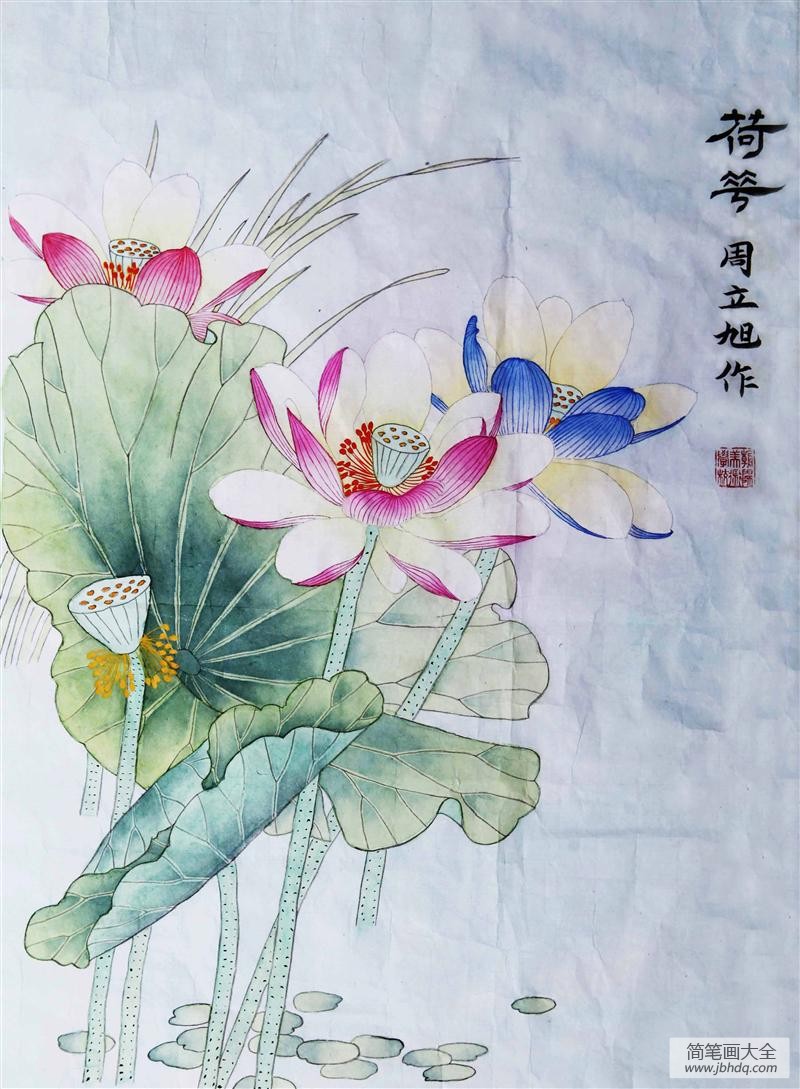 荷花
周立旭作
简笔画大全
www.jbhdq.com